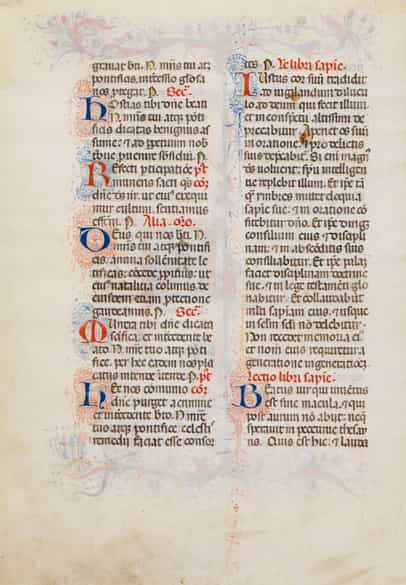 pontificis. intercessio gloriosa
nos protegat. Secr.
Hostias tibi dne beati
N. mris tui atq; pōti
ficis dicatas benignus as
sume: & ad perpetuum nob
tribue puenire subsidiū. P.
Refecti pticipatiōe
muneris sacri qs
dne ds nr. ut cuius exequi
mur cultum. sentiamus
effectū. P. Alia. oro.
Deus qui nos bti. N.
mris tui atq; pontifi
cis. annua sollēnitate le
tificas: cōcede ppitius. ut
cuius natalitia colimus. de
eiusdem etiam ptectione
gaudeamus. P. Secr.
Munera tibi dne dicata
scifica. et intercedente be
ato. N. mre tuo atq; pōti
fice. per hec eadem nos pla
catus intende. P.
Hec nos communio
dne purget a crimine
et intercedente bto. N. mre
tuo atq; pontifice celestis
remedij faciat esse consor
tes. P. Lectio libri sapie.
Iustus cor suū tradidit
ad uigilandum diluculo
ad deum qui fecit illum.
et in conspectu altissimi de
precabitur. Aperiet os suū
in oratione. et p delictis
suis deprecabit. Si eni magn
dns uoluerit: spu intelligen
tie replebit illum. Et ipse tā
q̄ ymbres mittet eloquia
sapie sue: & in oratione cō
fitebitur dno. Et ipse diriget
consilium eius & discipli
nam: & in absconditis suis
consiliabitur. Et ipse palam
faciet disciplinam doctrine
sue: & in lege testamēti glo
riabitur. Et collaudabunt
multi sapiam eius. & usque
in sclm scli nō delebitur.
Non recedet memoria eius.
et nomen eius requiretur a
generatione in generationem.
Lectio libri sapie.
Beatus uir qui inuentus
est sine macula. & qui
post aurum nō abiit. nec
sperauit in peccunie thesau
ris. Quis est hic: & lauda